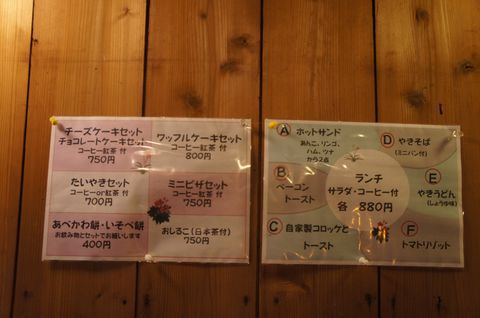 チーズケーキセット
チョコレートケーキセット
コーヒー紅茶 付
750円
ワッフルケーキセット
コーヒー紅茶 付
800円
たいやきセット
コーヒーor紅茶 付
700円
ミニピザセット
コーヒー紅茶 付
750円
あべかわ餅・いそべ餅
お飲み物とセットでお願いします
400円
おしるこ(日本茶付)
750円
Ⓐ ホットサンド
あんこ、リンゴ、
ハム、ツナ
から2点
Ⓑ ベーコン
トースト
Ⓒ 自家製コロッケと
トースト
ランチ
サラダ・コーヒー付
各 880円
Ⓓ やきそば
(ミニパン付)
Ⓔ やきうどん
(しょうゆ味)
Ⓕ トマトリゾット